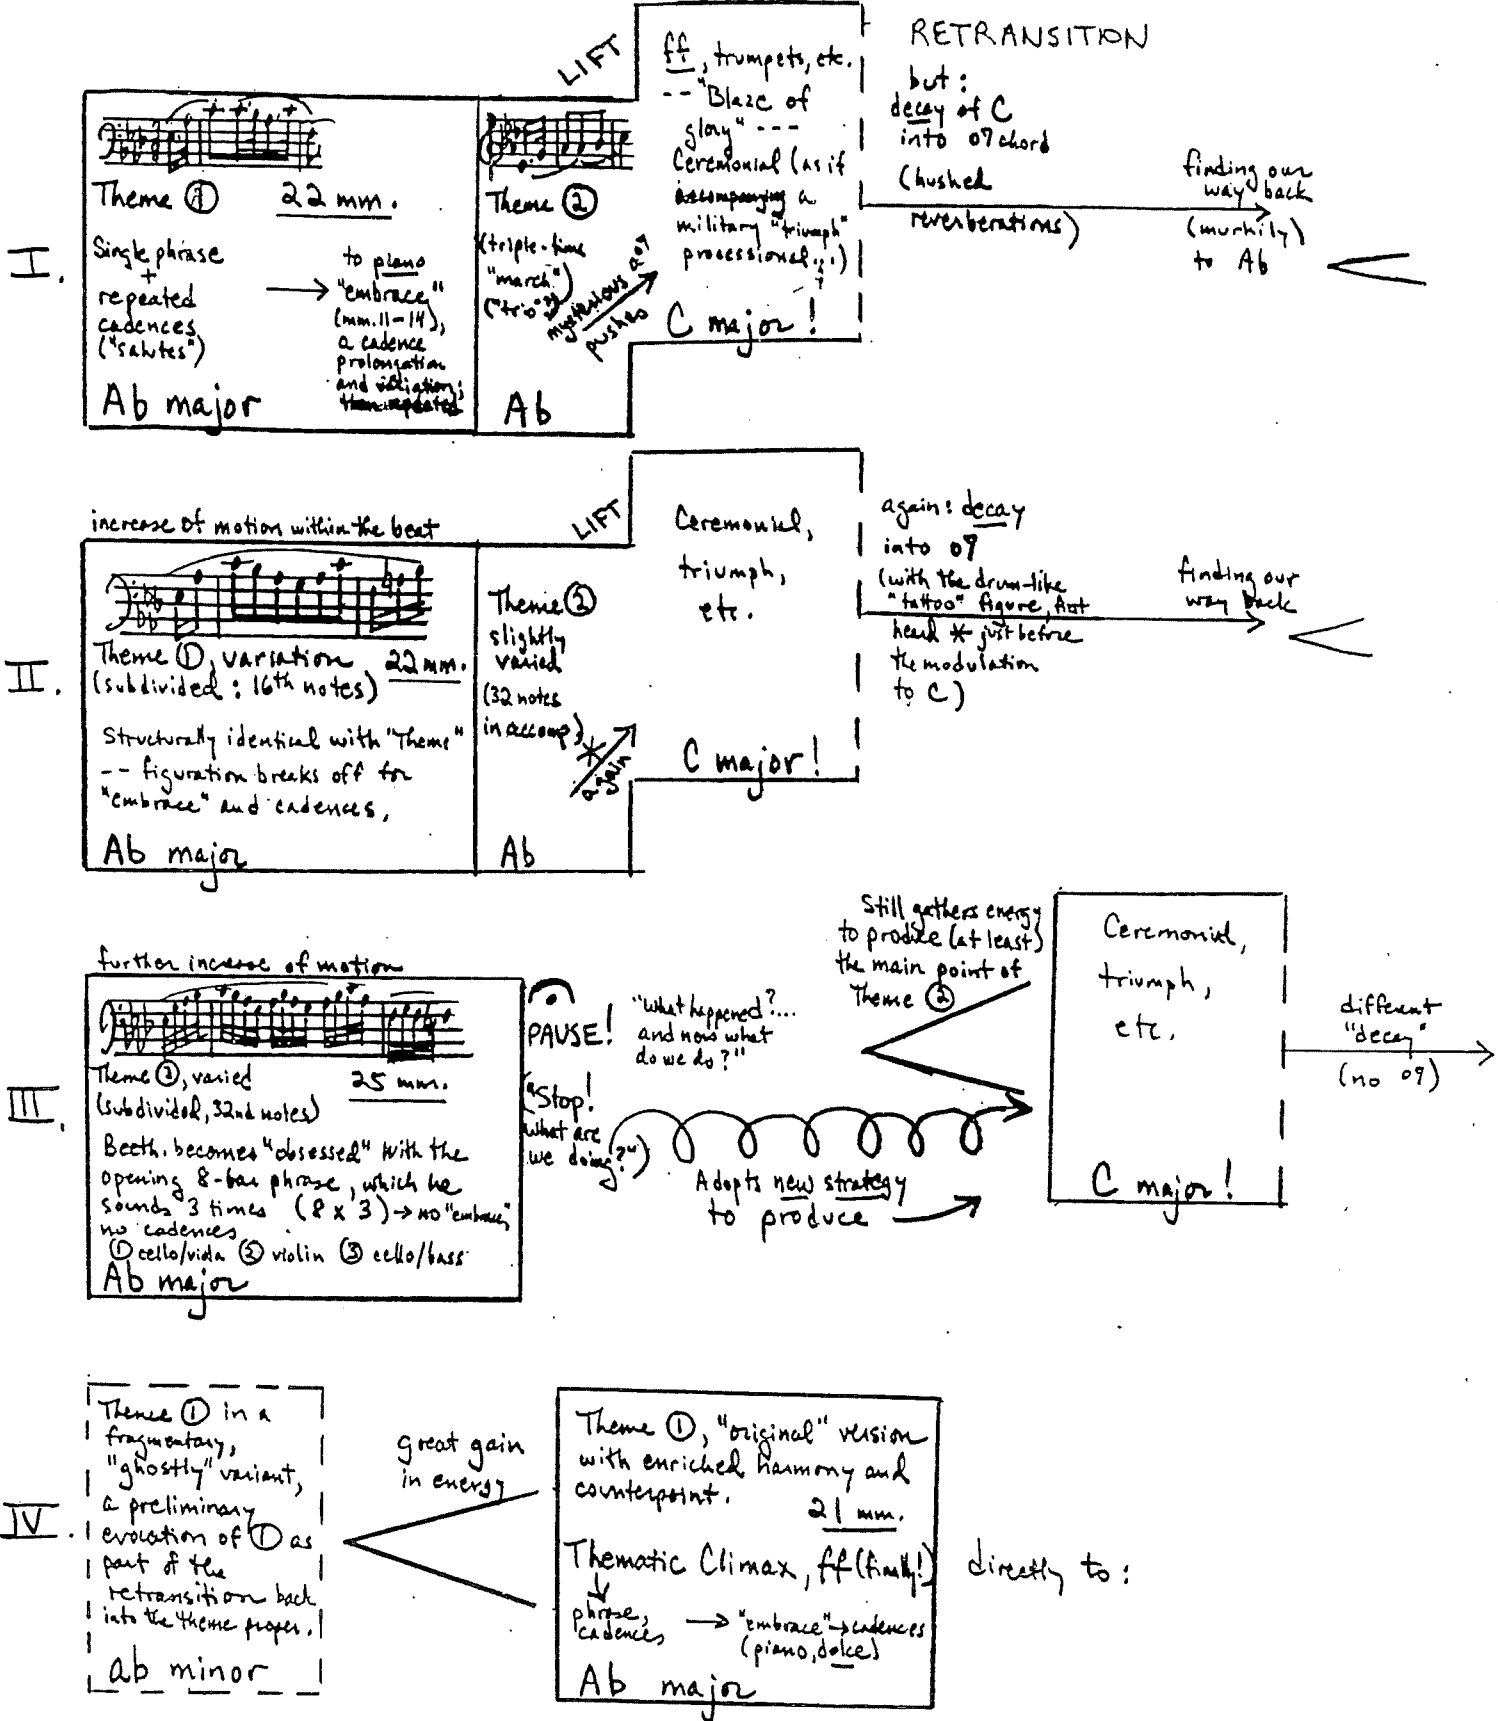 I.
Theme ① 22 mm.
Single phrase
+
repeated
cadences
("salutes")
to piano
"embrace"
(mm. 11-14),
a cadence
prolongation
and variation;
then repeated
Ab major
Theme ②
(triple-time
"march")
("trio"?)
Ab
LIFT
mysterious o7
pushes
ff, trumpets, etc.
-- "Blaze of
glory" ---
Ceremonial (as if
accompanying a
military "triumph"
processional...)
?
C major!
RETRANSITION
but:
decay of C
into o7 chord
(hushed
reverberations)
finding our
way back
(murkily)
to Ab
II.
increase of motion within the beat
Theme ①, variation 22 mm.
(subdivided: 16th notes)
Structurally identical with "Theme"
-- figuration breaks off for
"embrace" and cadences.
Ab major
Theme ②
slightly
varied
(32 notes
in accomp.)
*
again
Ab
LIFT
Ceremonial,
triumph,
etc.
C major!
again: decay
into o7
(with the drum-like
"tattoo" figure, first
heard * just before
the modulation
to C)
finding our
way back
III.
further increase of motion
Theme ①, varied 25 mm.
(subdivided, 32nd notes)
Beeth. becomes "obsessed" with the
opening 8-bar phrase, which he
sounds 3 times (8 x 3) → no "embrace,"
no cadences
① cello/viola ② violin ③ cello/bass
Ab major
PAUSE!
("Stop!
what are
we doing?")
"What happened?...
and now what
do we do?"
Still gathers energy
to produce (at least)
the main point of
Theme ②
Adopts new strategy
to produce
Ceremonial,
triumph,
etc.
C major!
different
"decay"
(no o7)
IV.
Theme ① in a
fragmentary,
"ghostly" variant,
a preliminary
evocation of ① as
part of the
retransition back
into the theme proper.
ab minor
great gain
in energy
Theme ①, "original" version
with enriched harmony and
counterpoint.
21 mm.
Thematic Climax, ff (finally!)
phrase, → "embrace" → cadences
cadences (piano, dolce)
Ab major
directly to: